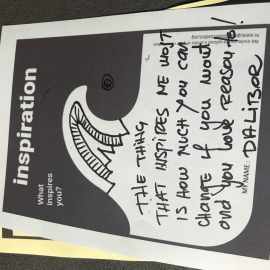 inspiration
What
inspires
you?
THE THING
THAT INSPIRES ME MOST
IS HOW MUCH YOU CAN
CHANGE IF YOU WONT
and you have reason to!
MY NAME: DALIBOR